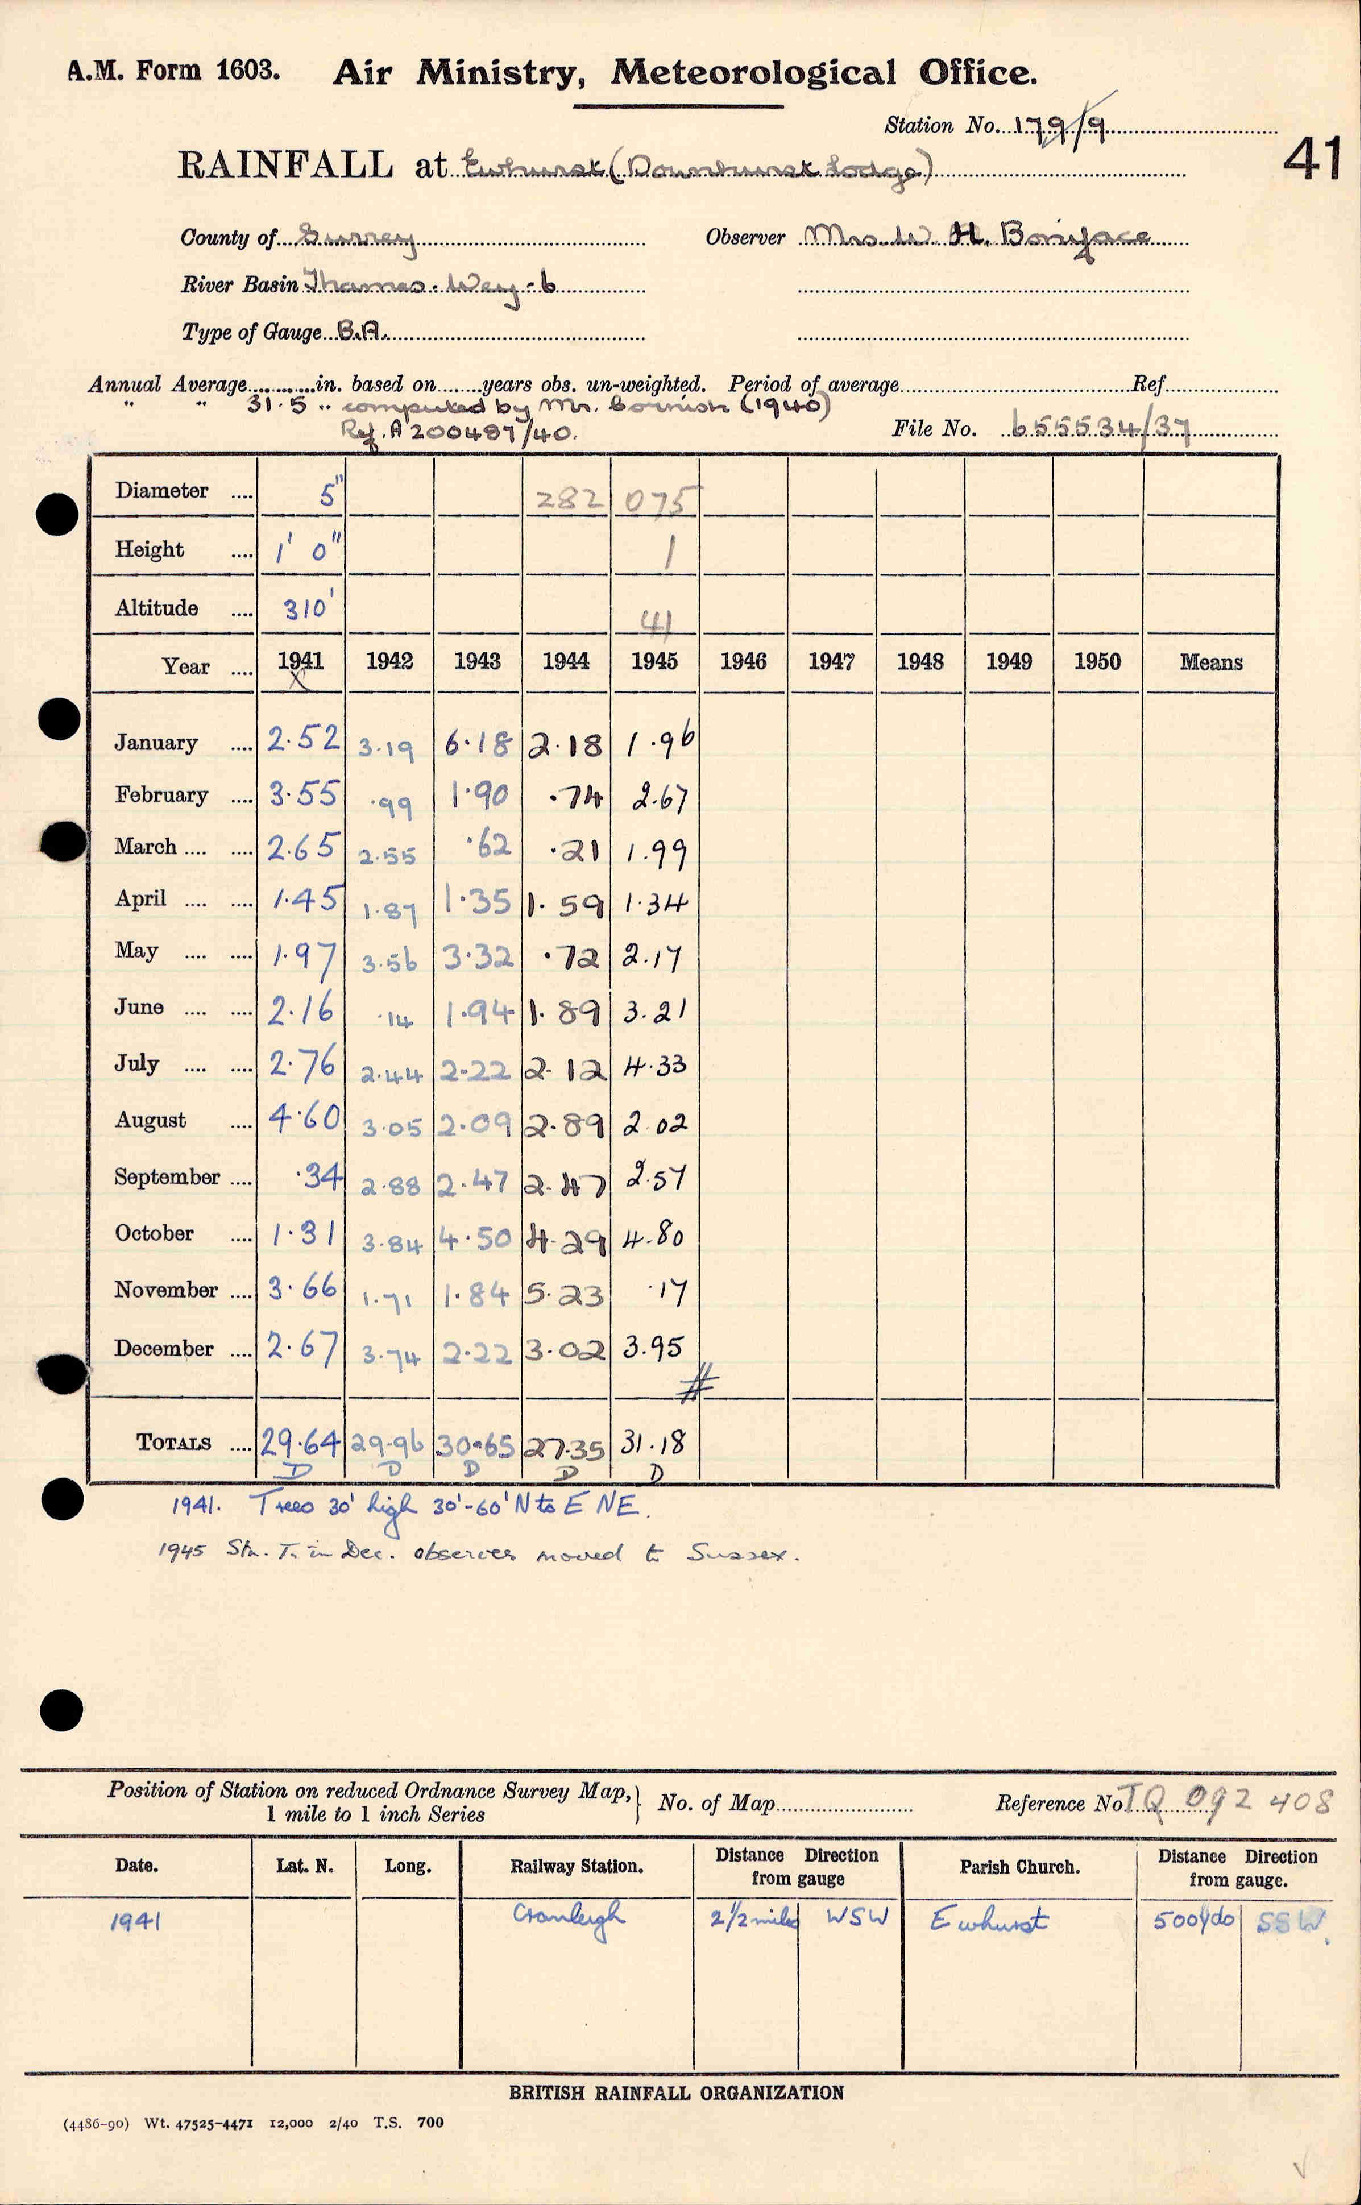 A.M. Form 1603. Air Ministry, Meteorological Office.
Station No. 179/9
41
RAINFALL at Ewhurst (Downhurst Lodge)
County of Surrey Observer Mrs. W. H. Boniface
River Basin Thames. Wey - b
Type of Gauge B.A.
Annual Average in. based on years obs. un-weighted. Period of average Ref.
" " 31.5 " computed by Mr. Cornish (1940)
Ref. A 200487/40. File No. 655534/37
Diameter .... 5" 282 075
Height .... 1' 0" 1
Altitude .... 310' 41
Year .... 1941 1942 1943 1944 1945 1946 1947 1948 1949 1950 Means
X
January .... 2.52 3.19 6.18 2.18 1.96
February .... 3.55 .99 1.90 .74 2.67
March .... .... 2.65 2.55 .62 .21 1.99
April .... .... 1.45 1.87 1.35 1.59 1.34
May .... .... 1.97 3.56 3.32 .72 2.17
June .... .... 2.16 .14 1.94 1.89 3.21
July .... .... 2.76 2.44 2.22 2.12 4.33
August .... 4.60 3.05 2.09 2.89 2.02
September .... .34 2.88 2.47 2.47 2.57
October .... 1.31 3.84 4.50 4.29 4.80
November .... 3.66 1.71 1.84 5.23 .17
December .... 2.67 3.74 2.22 3.02 3.95
#
TOTALS .... 29.64 29.96 30.65 27.35 31.18
D D D D D
1941. Trees 30' high 30'-60' N to E NE.
1945 Stn. T. in Dec. observer moved to Sussex.
Position of Station on reduced Ordnance Survey Map, } No. of Map Reference No TQ 092 408
1 mile to 1 inch Series
Date. Lat. N. Long. Railway Station. Distance from gauge Direction Parish Church. Distance from gauge. Direction
1941 Cranleigh 2 1/2 miles WSW Ewhurst 500 yds SSW.
BRITISH RAINFALL ORGANIZATION
(4486-90) Wt. 47525-4471 12,000 2/40 T.S. 700